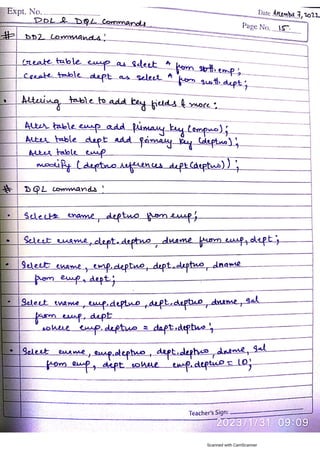 Expt. No.
Date November 7, 2022
Page No. 15
DDL & DQL Commands
# DDL Commands:
Create table emp as select * from scott.emp;
Create table dept as select * from scott.dept;
• Altering table to add key fields & more:
Alter table emp add primary key (empno);
Alter table dept add primary key (deptno);
Alter table emp
modify (deptno references dept(deptno));
# DQL commands:
• Select ename, deptno from emp;
• Select ename, dept.deptno, dname from emp, dept;
• Select ename, emp.deptno, dept.deptno, dname
from emp, dept;
• Select ename, emp.deptno, dept.deptno, dname, sal
from emp, dept
where emp.deptno = dept.deptno;
• Select ename, emp.deptno, dept.deptno, dname, sal
from emp, dept where emp.deptno = 10;
Teacher's Sign:
2023/1/31 09:09
Scanned with CamScanner